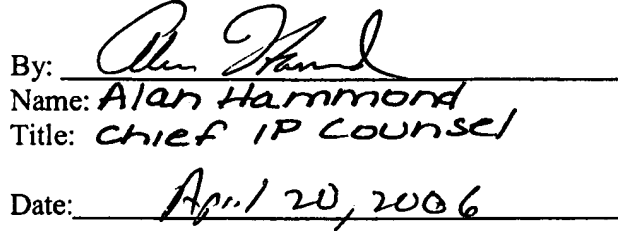 By: Alan Hammond
Name: Alan Hammond
Title: Chief IP Counsel
Date: April 20, 2006